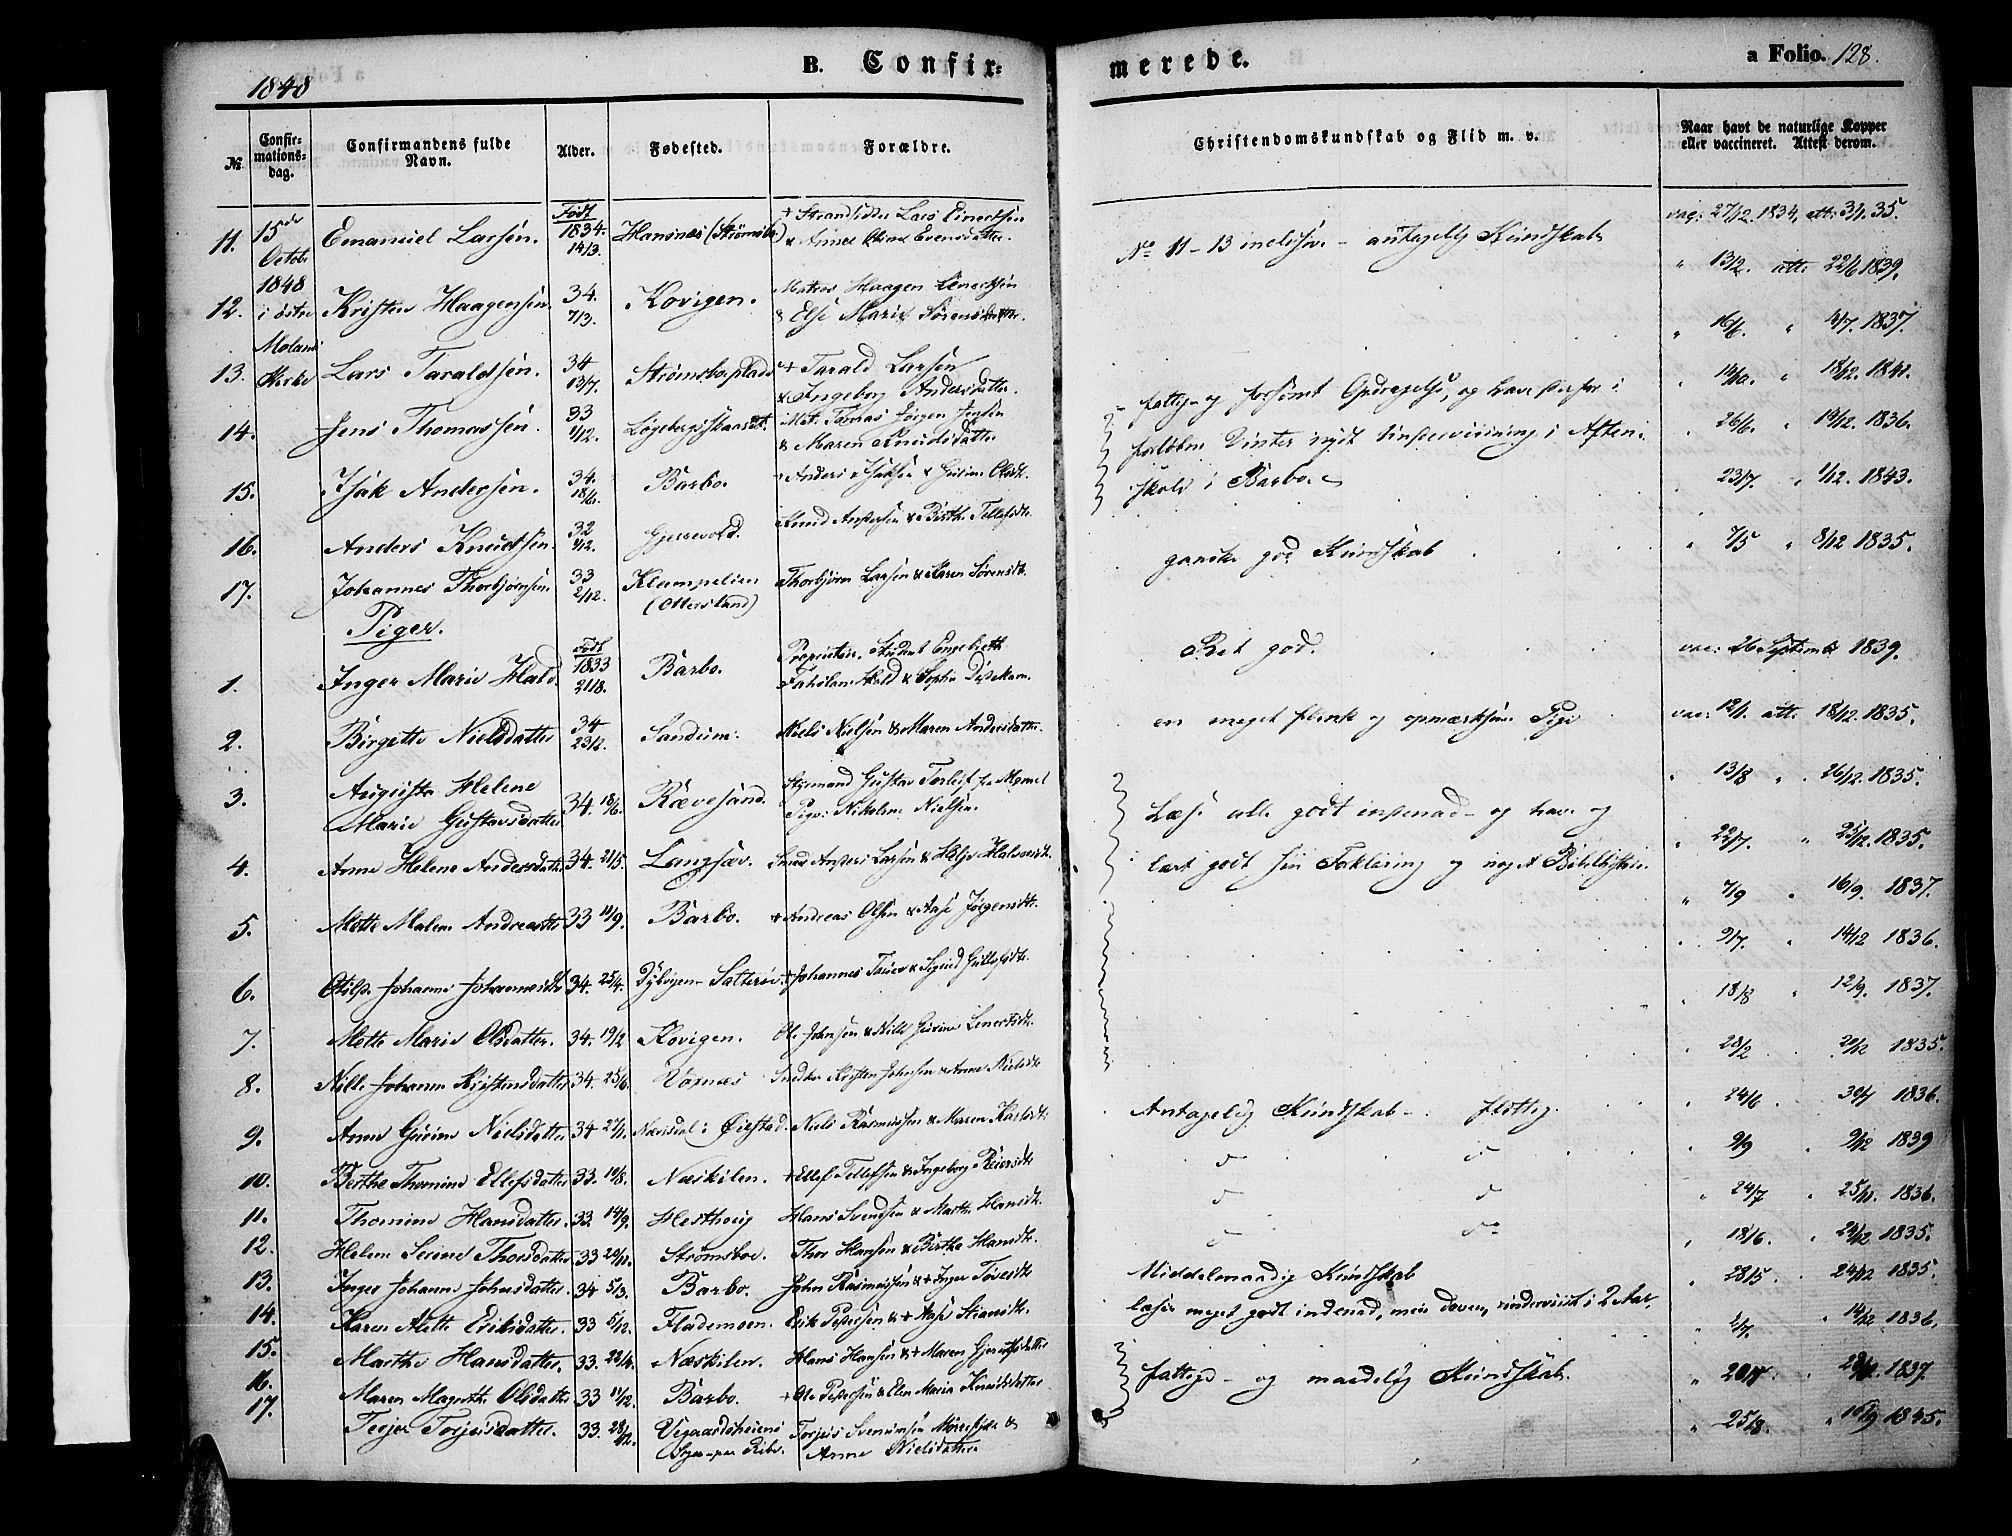 1848 B. Confir= merede. a Folio. 128.
№ Confir=mations=dag. Confirmandens fulde Navn. Alder. Fødested. Forældre. Christendomskundskab og Flid m. v. Naar havt de naturlige Kopper eller vaccineret. Attest derom.
11. 15de Octobr Emanuel Larsen. Født 1834. 14/3. Hansnæs (Strømsbo) + Strandsidder Lars Einertsen & Anne Evensdatter. No 11-13 inclusive - antagelig Kundskab vac: 27/12 1834, att: 3/1. 35.
12. 1848 i østre Kristen Haagensen 34. 7/3. Kovigen. Matros Haagen Enertsen & Else Marie Sørensdatter. " 13/2. att: 22/6 1839.
13. Molands Kirke Lars Taraldsen. 34 13/7. Strømsboplads + Tarald Larsen & Ingeborg Andersdatter. " 16/6. " 4/7. 1837.
14. Jens Thomassen. 33 1/12. Løgebergsskaaret. Mat. Tomas Jørgen Jensen & Maren Knudsdatter " 14/10. " 18/12. 1841.
fattig og forsømt Opdragelse, og have derfor i
forløbne Vinter nydt Underviisning i Aften=
skole i Barbo. " 26/6. " 19/12. 1836.
15. Isak Andersen. 34. 18/6. Barbo. Anders Isaksen & Gurine Olsdt. " 23/7. " 1/12. 1843.
16. Anders Knudsen. 32 4/12. Gjerevold. Knud Andersen & Birthe Tellefsdt. ganske god Kundskab " 7/5 " 8/12 1835.
17. Johannes Thorbjørnsen 33 2/12. Klampelien (Ottersland) Thorbjørn Larsen & Karen Sørensdt.
Piger.
1. Inger Marie Hald. Født 1833 21/8. Barbo. Proprietær, Student Engebreth Hald & Sophie Ret god. vac: 26 Septembr 1839.
2. Birgette Nielsdatter 34 23/2. Sandum. Niels Nielsen & Maren Andersdatter. en meget flink og opmærksom Pige vac: 12/1. att: 18/12. 1835.
3. Augusta Helene Marie Gustavsdatter 34. 18/6. Rævesand. Styrmand Gustav Torleif fra Memel Pige: Nikoline Nielsen. " 13/8 " 26/12. 1835.
Læse alle godt indenad - og have og
lært godt sin Forklaring og noget Bibelhistorie.
4. Anne Helene Andersdatter 34. 21/5. Langsæv. Smed Anders Larsen & Helje Halvorsdt. " 22/7. " 25/12. 1835.
5. Mette Malene Andreasdtr 33 14/9. Barbo. + Andreas Olsen & Aase Jørgensdt. " 7/9 " 16/9. 1837.
6. Johanne Johannesdtr 34. 25/4. Dybvigen - Salterøe. + Johannes & Sigrid Gullofsdt. " 9/7. " 14/12 1836.
7. Mette Marie Olsdatter. 34. 19/12 Kovigen. Ole Johnsen & Nille Gurine Enertsdt. " 18/8 " 12/9. 1837.
8. Nille Johanne Kristensdatter 34. 25/6. Vaxnæs Kristen Johnsen & Anne Nielsdt " 28/2 20/12 1835.
9. Anne Gurine Nielsdatter 34 27/1. Nævisdal i Øiestad. Niels Rasmussen & Maren Karlsdt: Antagelig Kundskab - flittig. " 24/6 " 30/1 1836.
10. Berthe Thomine Ellefsdatter 33. 19/8. Næskilen. + Ellef Tellefsen & Ingeborg Reiersdt. do do " 9/9 " 9/12 1839
11. Thomine Hansdatter. 33. 14/9. Hesthoug Hans Svendsen & Marthe Hansdt. do do " 24/7 " 25/11. 1836.
12. Helene Serine Thorsdatter 33 20/11. Strømsboe. Thor Hansen & Birthe Hansdt. do do " 18/6. " 24/12 1835.
13. Inger Johanne Johnsdatter. 34 5/3. Barbo. John Rasmussen & + Inger Toresdt Middelmaadig Kundskab " 28/5 " 24/12 1835.
14. Karen Mette Eriksdatter. 33 5/12. Flademoen. Erik Pedersen & + Aase Stiansdt. læser meget godt indenad, men døven, underviist i 2 Aar. " 2/7. " 14/12 1836.
15. Marthe Hansdatter. 33. 22/4. Næskilen. Hans Hansen & + Maren Gjeruldsdatter fattige - og maadelig Kundskab. " 20/7. " 28/12. 1837.
16. Maren Magrethe Olsdatter 33 11/12. Barbo. + Ole Pedersen & Elen Maria Knudsdatter
17. Terjer Torjusdatter. 33. 28/12. Vegaardsheiens Sogn - per Riisø. Torjus Svenumsen & Anne Nielsdatter. " 25/8. " 16/9 1845.